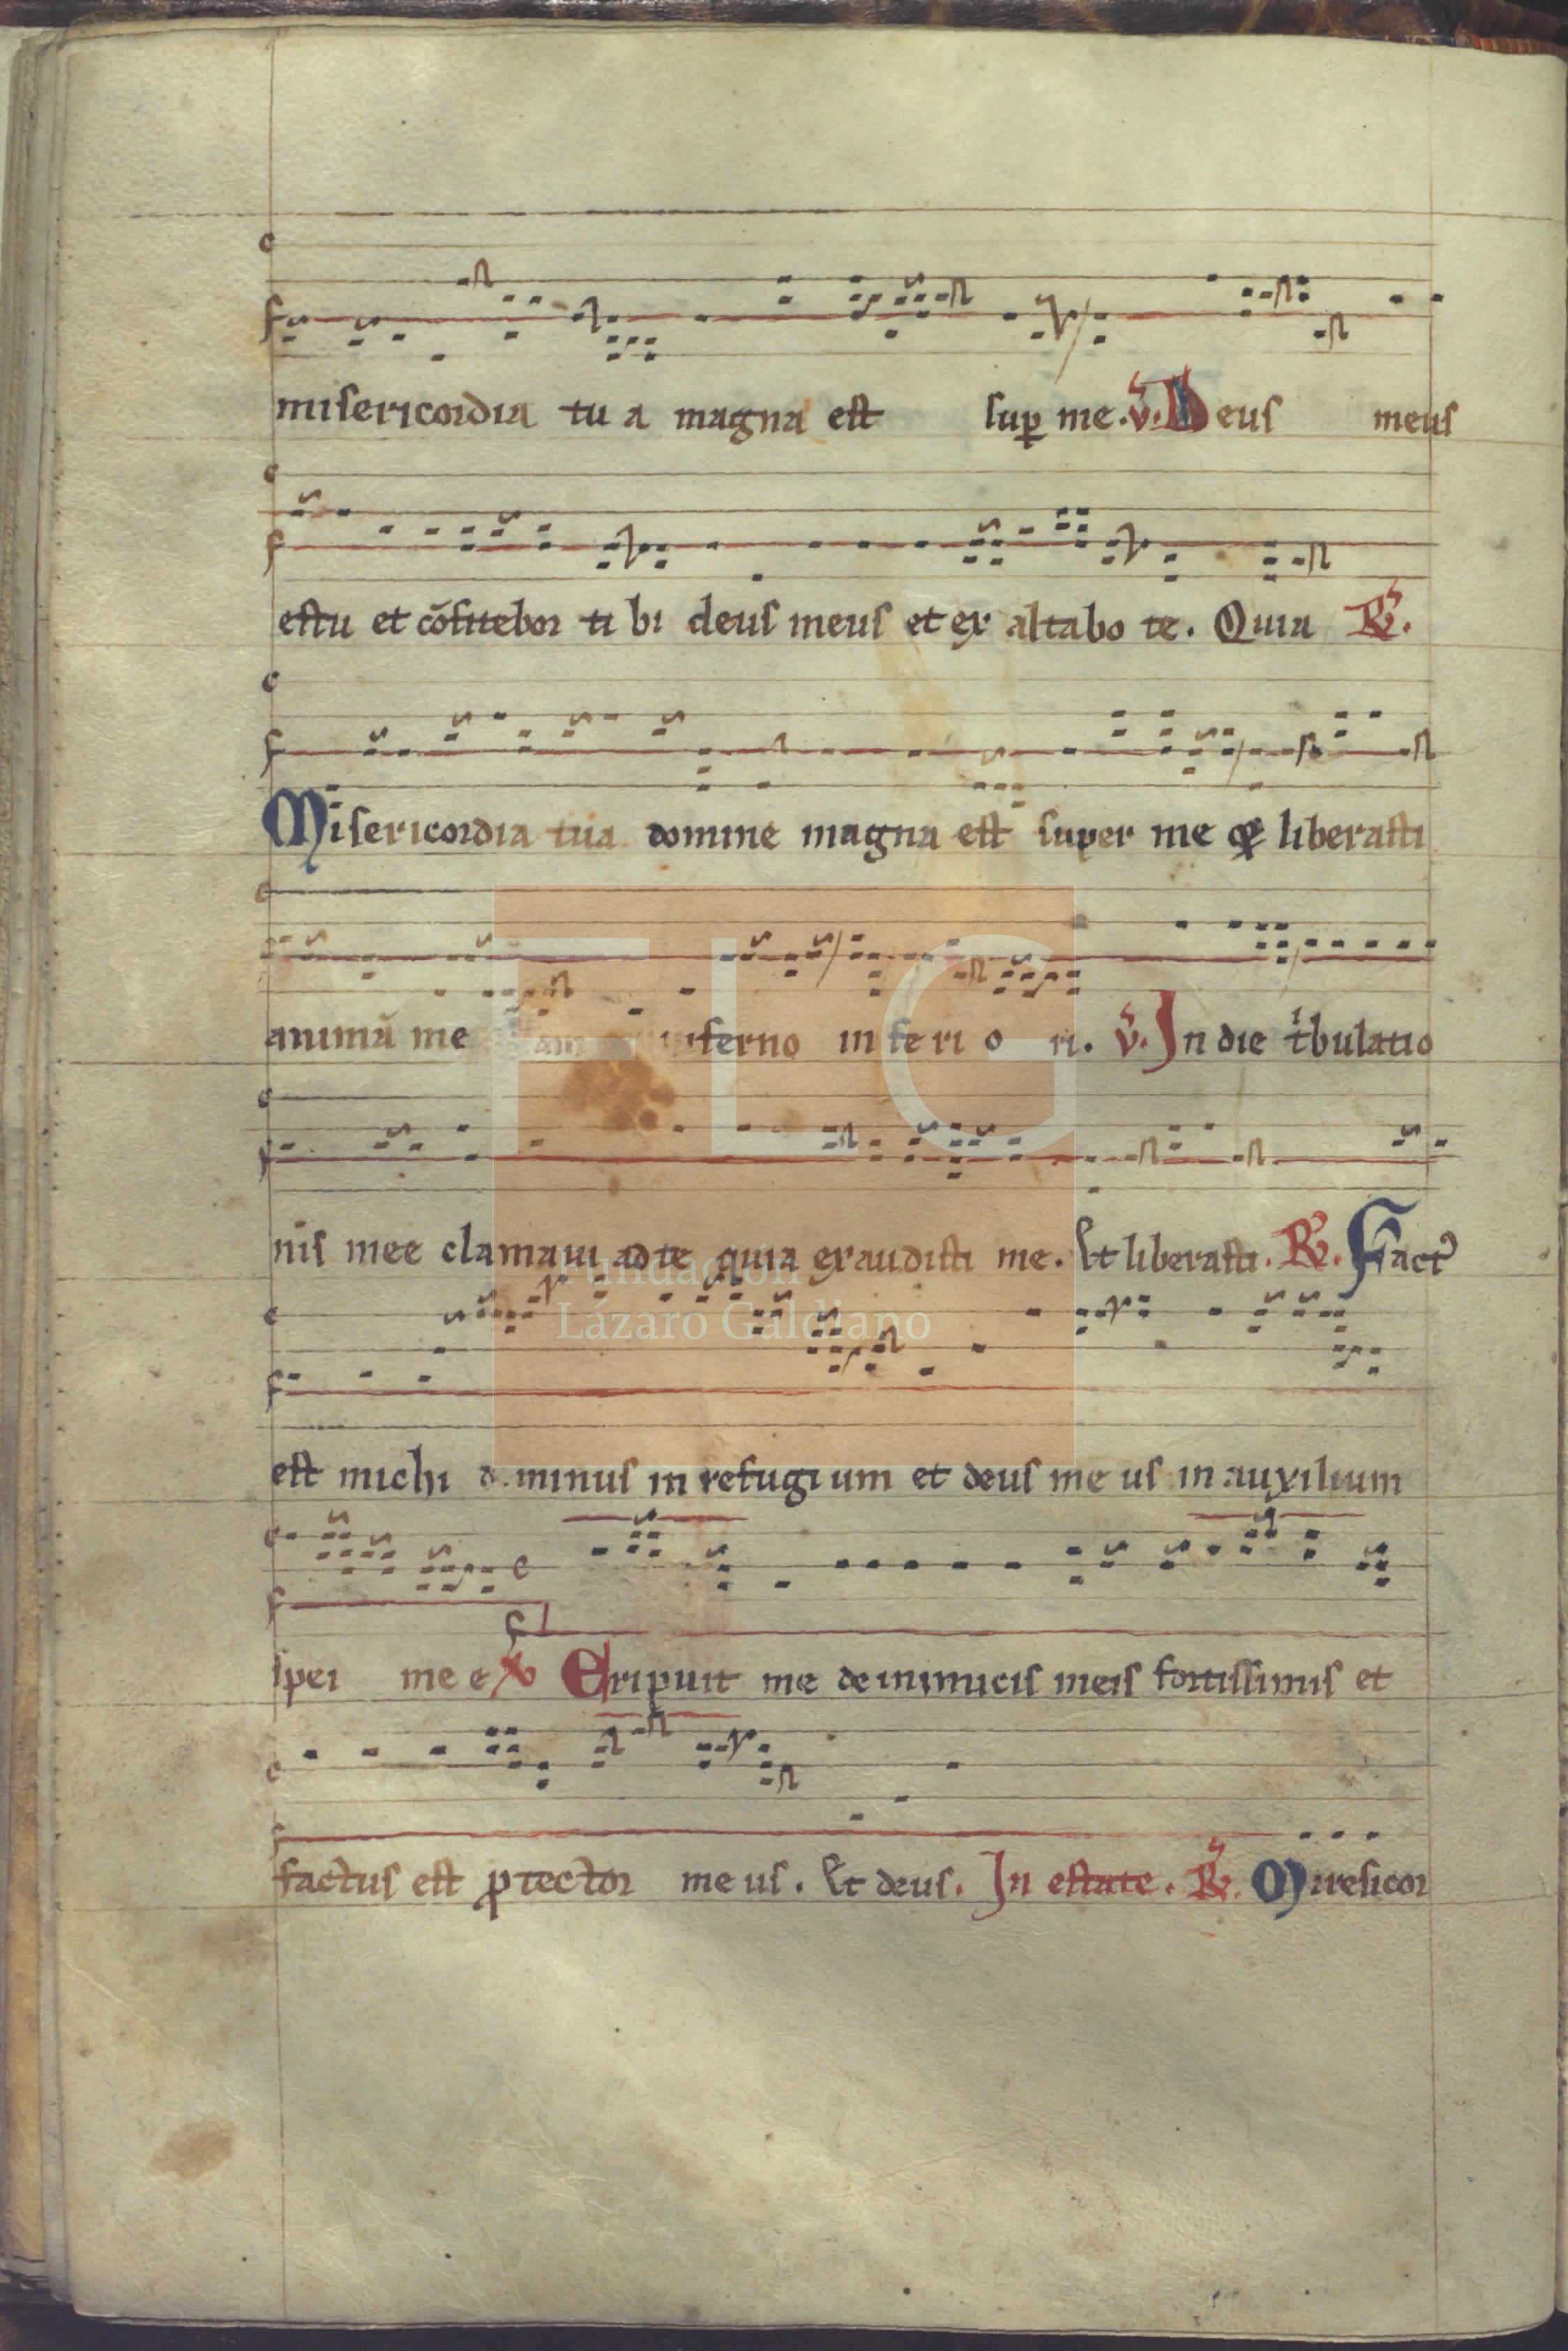 misericordia tu a magna est sup̱ me. ℣. Deus meus
estu et cōfitebor ti bi deus meus et ex altabo te. Quia ℟.
Misericordia tua domine magna est super me liberasti
animā me am inferno in fe ri o ri. ℣. In die tⁱbulatio
nis mee clamaui ad te quia exaudisti me. Et liberasti. ℟. Fact᾽
est michi dominus in refugi um et deus me us in auxilium
spei me e Eripuit me de inimicis meis fortissimis et
factus est ꝓtector me us. Et deus. In estate. ℟. Miresicor
FLG
Fundación
Lázaro Galdiano